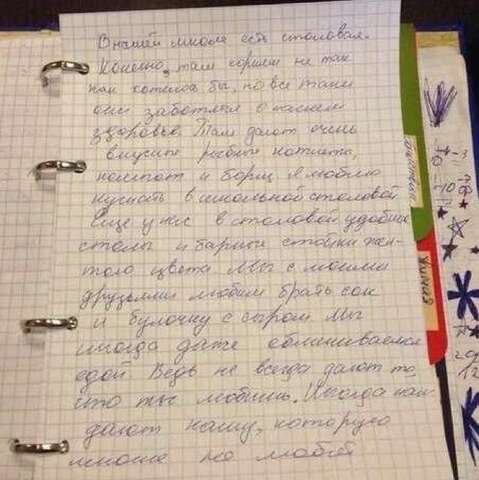 В нашей школе есть столовая.
Конечно, там кормят не так
как хотелось бы, но все таки
они заботятся о нашем
здоровье. Там дают очень
вкусные рыбные котлеты,
компот и борщ. Я люблю
кушать в школьной столовой
Еще у нас в столовой удобные
столы и барные стойки жел-
того цвета. Мы с моими
друзьями любим брать сок
и булочку с сыром. Мы
иногда даже обмениваемся
едой. Ведь не всегда дают то,
что ты любишь. Иногда нам
дают кашу, которую
многие не любят
Химия